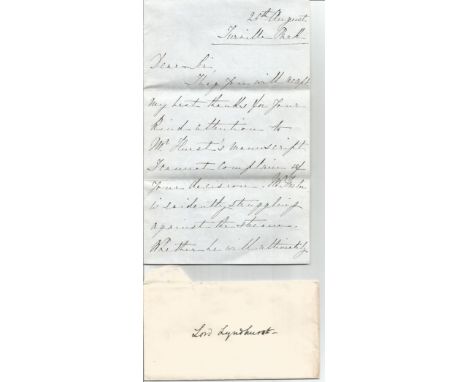 25th August.
Turville Park.
Dear Sir,
I hope you will accept
my best thanks for your
kind attention to
Mr Hurst's manuscript
I cannot complain of
your decision. Mr
is evidently struggling
against the stream.
Whether he will ultimately
Lord Lyndhurst